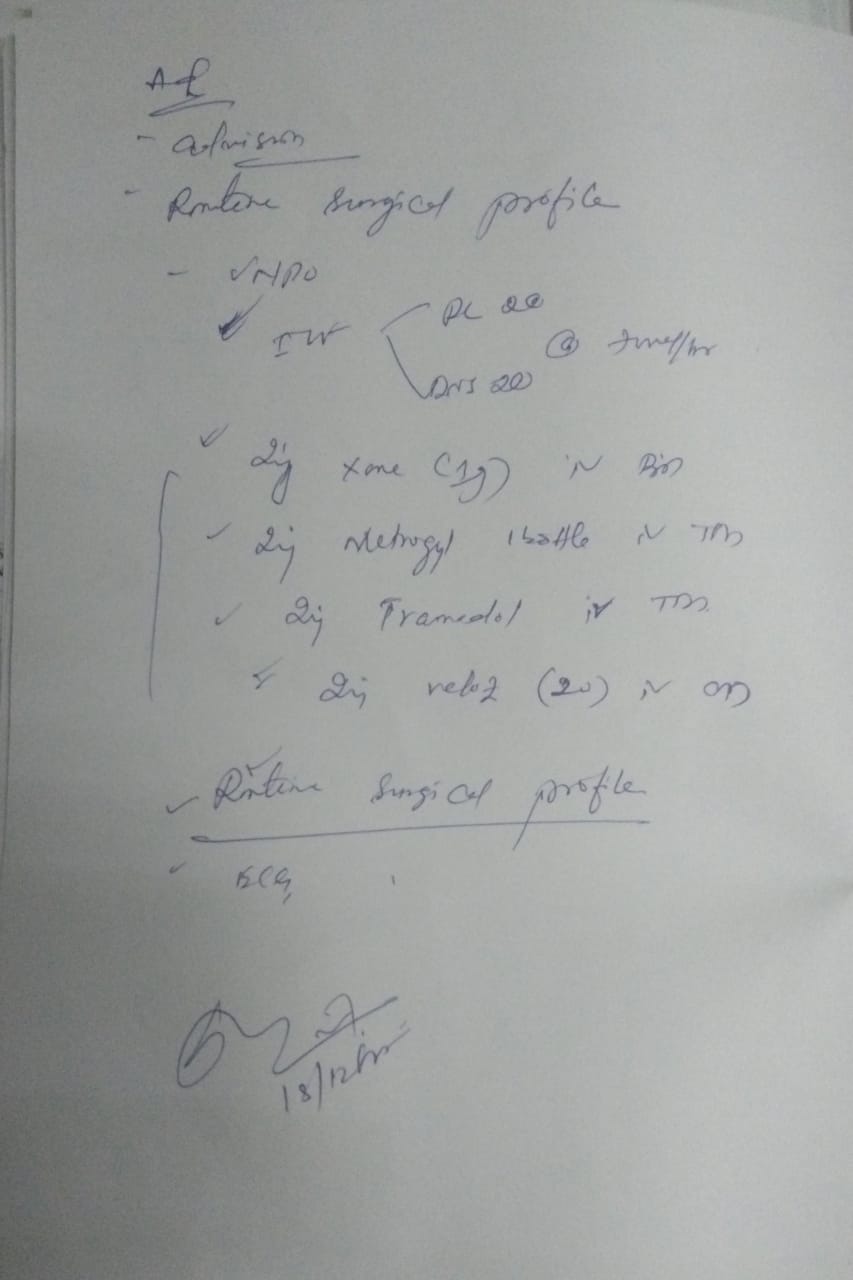 Adv
- admission
- Routine surgical profile
- NPO
IVF RL @
DNS
Inj Xone (1g) IV BD
Inj Metrogyl 1 bottle IV TDS
Inj Tramadol IV TDS
Inj veloz (20) IV OD
Routine Surgical profile
ECG
18/12